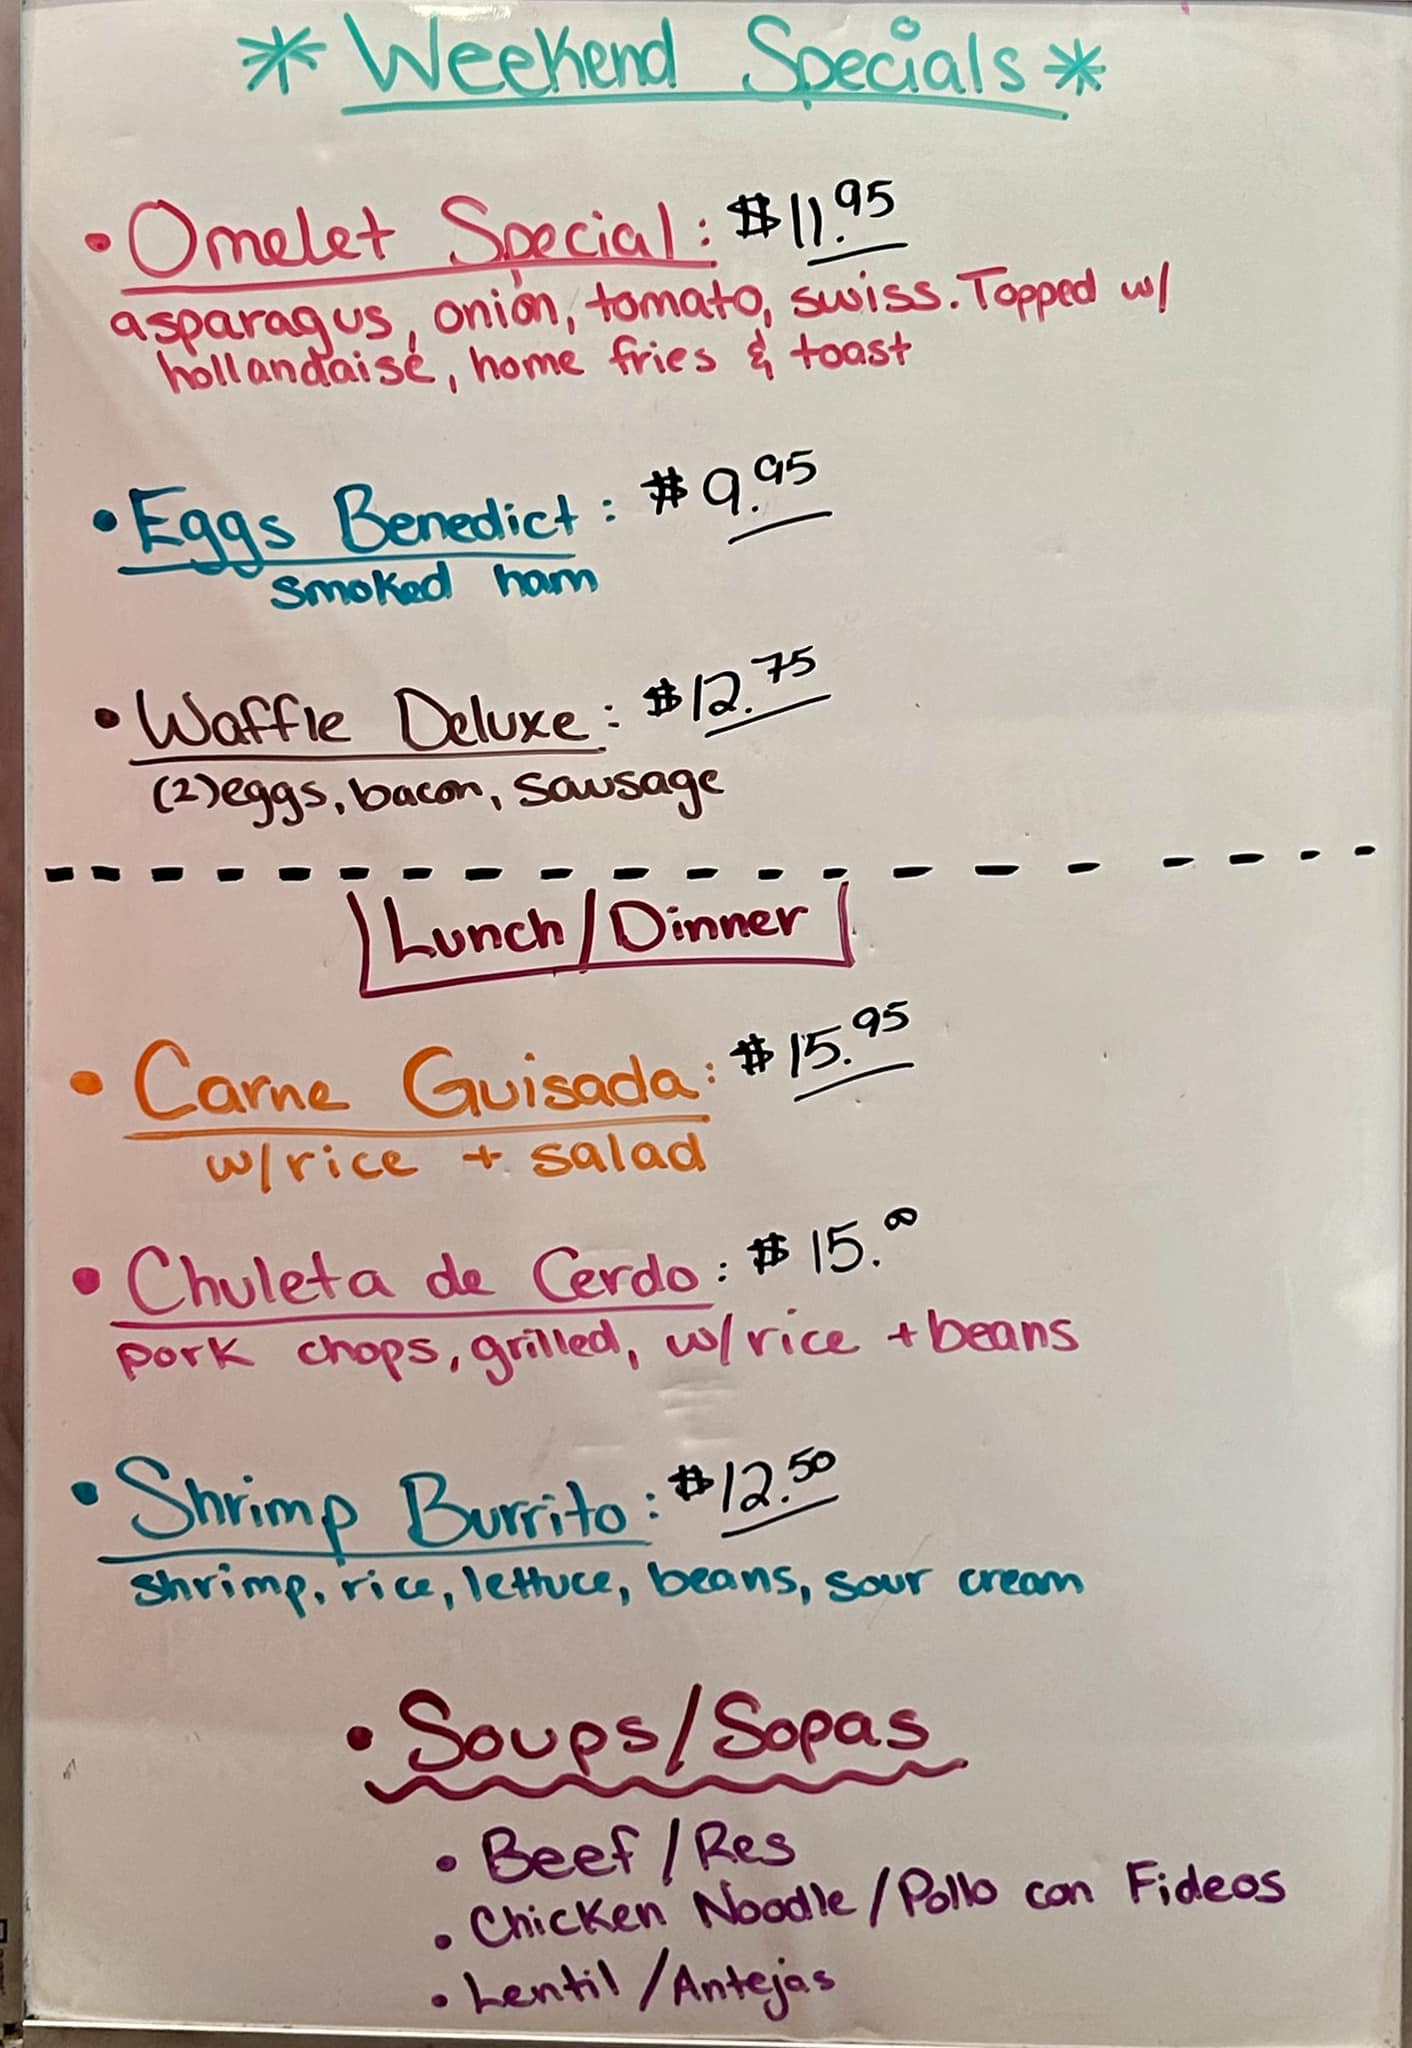 * Weekend Specials *
• Omelet Special: $11.95
asparagus, onion, tomato, swiss. Topped w/
hollandaise, home fries & toast
• Eggs Benedict: $9.95
smoked ham
• Waffle Deluxe: $12.75
(2) eggs, bacon, sausage
Lunch/Dinner
• Carne Guisada: $15.95
w/rice + salad
• Chuleta de Cerdo: $15.00
pork chops, grilled, w/rice + beans
• Shrimp Burrito: $12.50
shrimp, rice, lettuce, beans, sour cream
• Soups/Sopas
• Beef/Res
• Chicken Noodle/Pollo con Fideos
• Lentil/Antejas